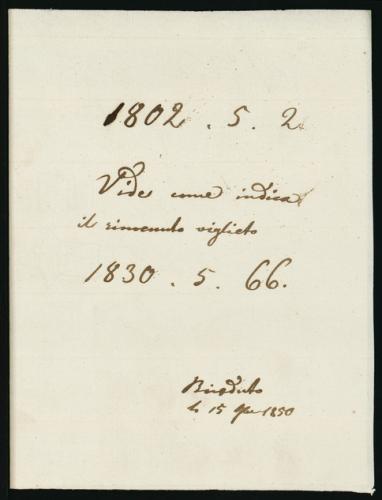 1802 . 5 . 2
Vide come indica
il rinvenuto viglieto
1830 . 5 . 66.
li 15 9bre 1850